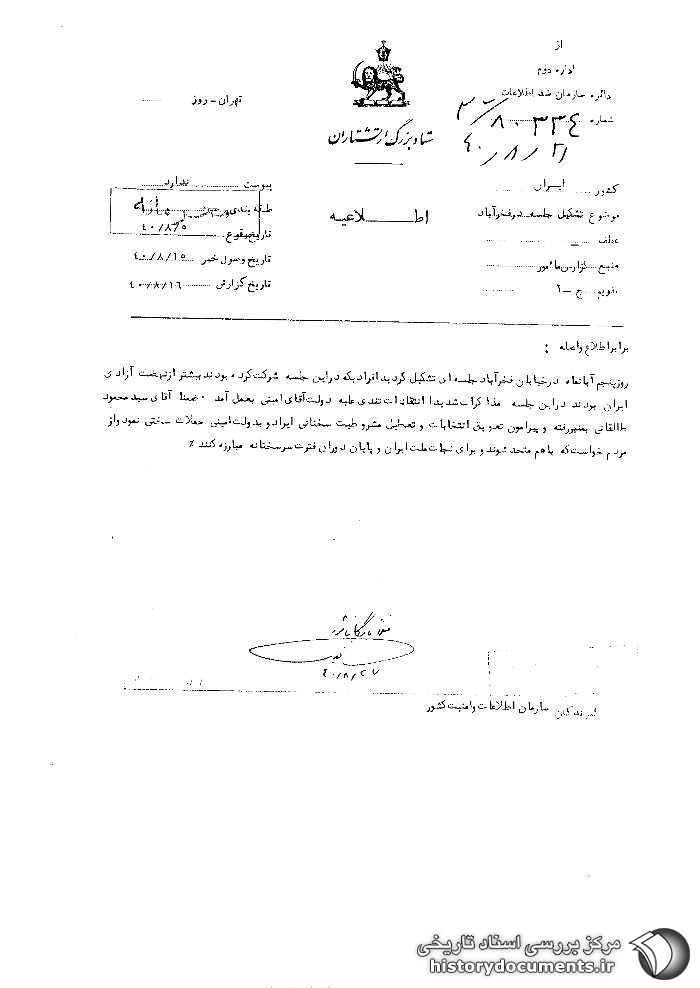 از
اداره دوم
دائره سازمان ضد اطلاعات
شماره ۸۰۳۳۴
۴۰/۸/۲۱
ستاد بزرگ ارتشتاران
تهران - روز
کشور ایران
موضوع تشکیل جلسه در فخرآباد
عطف
منبع گزارش مأمور
تقویم ج - ۲
اطلاعیه
پیوست ندارد
طبقه بندی
تاریخ وقوع ۴۰/۸/۵
تاریخ وصول خبر ۴۰/۸/۱۵
تاریخ گزارش ۴۰/۸/۱۶
برابر اطلاع واصله :
روز پنجم آبانماه در خیابان فخرآباد جلسه ای تشکیل گردید افرادیکه در این جلسه شرکت کرده بودند بیشتر از نهضت آزادی
ایران بودند در این جلسه مذاکرات شدید انتقادات تندی علیه دولت آقای امینی بعمل آمد ۰ ضمنا آقای سید محمود
طالقانی بمنبر رفته و پیرامون تعویق انتخابات و تعطیل مشروطیت سخنانی ایراد و بدولت امینی حملات سختی نمود و از
مردم خواست که باهم متحد شوند و برای نجات ملت ایران و پایان دوران فترت سرسختانه مبارزه کنند ٪
۴۰/۸/۲۷
گیرندگان سازمان اطلاعات و امنیت کشور
مرکز بررسی اسناد تاریخی
historydocuments.ir